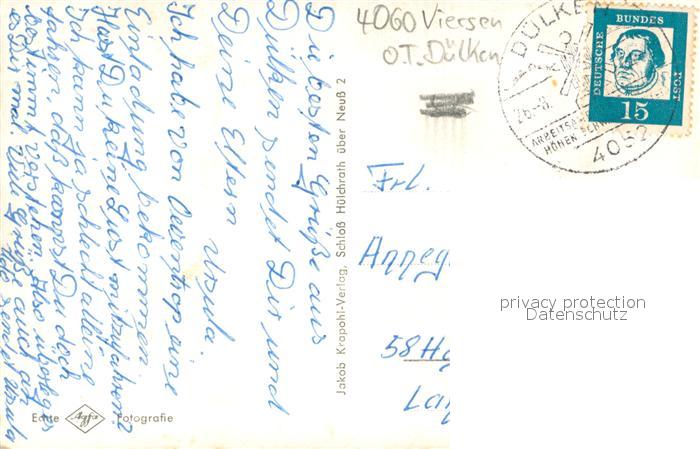 Die besten Grüße aus
Dülken sendet Dir und
Deine Eltern
Ursula.
Ich habe von eine
Einladung bekommen
Hast Du keine Lust mitzufahren?
Ich kann ja schlecht alleine
fahren, daß kannst Du doch
bestimmt verstehen. Also überleg es
es Dir mal. Viele Grüße auch an
Ursula
4060 Viersen
O.T. Dülken
DÜLKEN
4052
DEUTSCHE BUNDES POST
15
Frl.
Anneg
58 Ha
Lan
privacy protection
Datenschutz
Jakob Krapohl-Verlag, Schloß Hülchrath über Neuß 2
Echte Agfa Fotografie